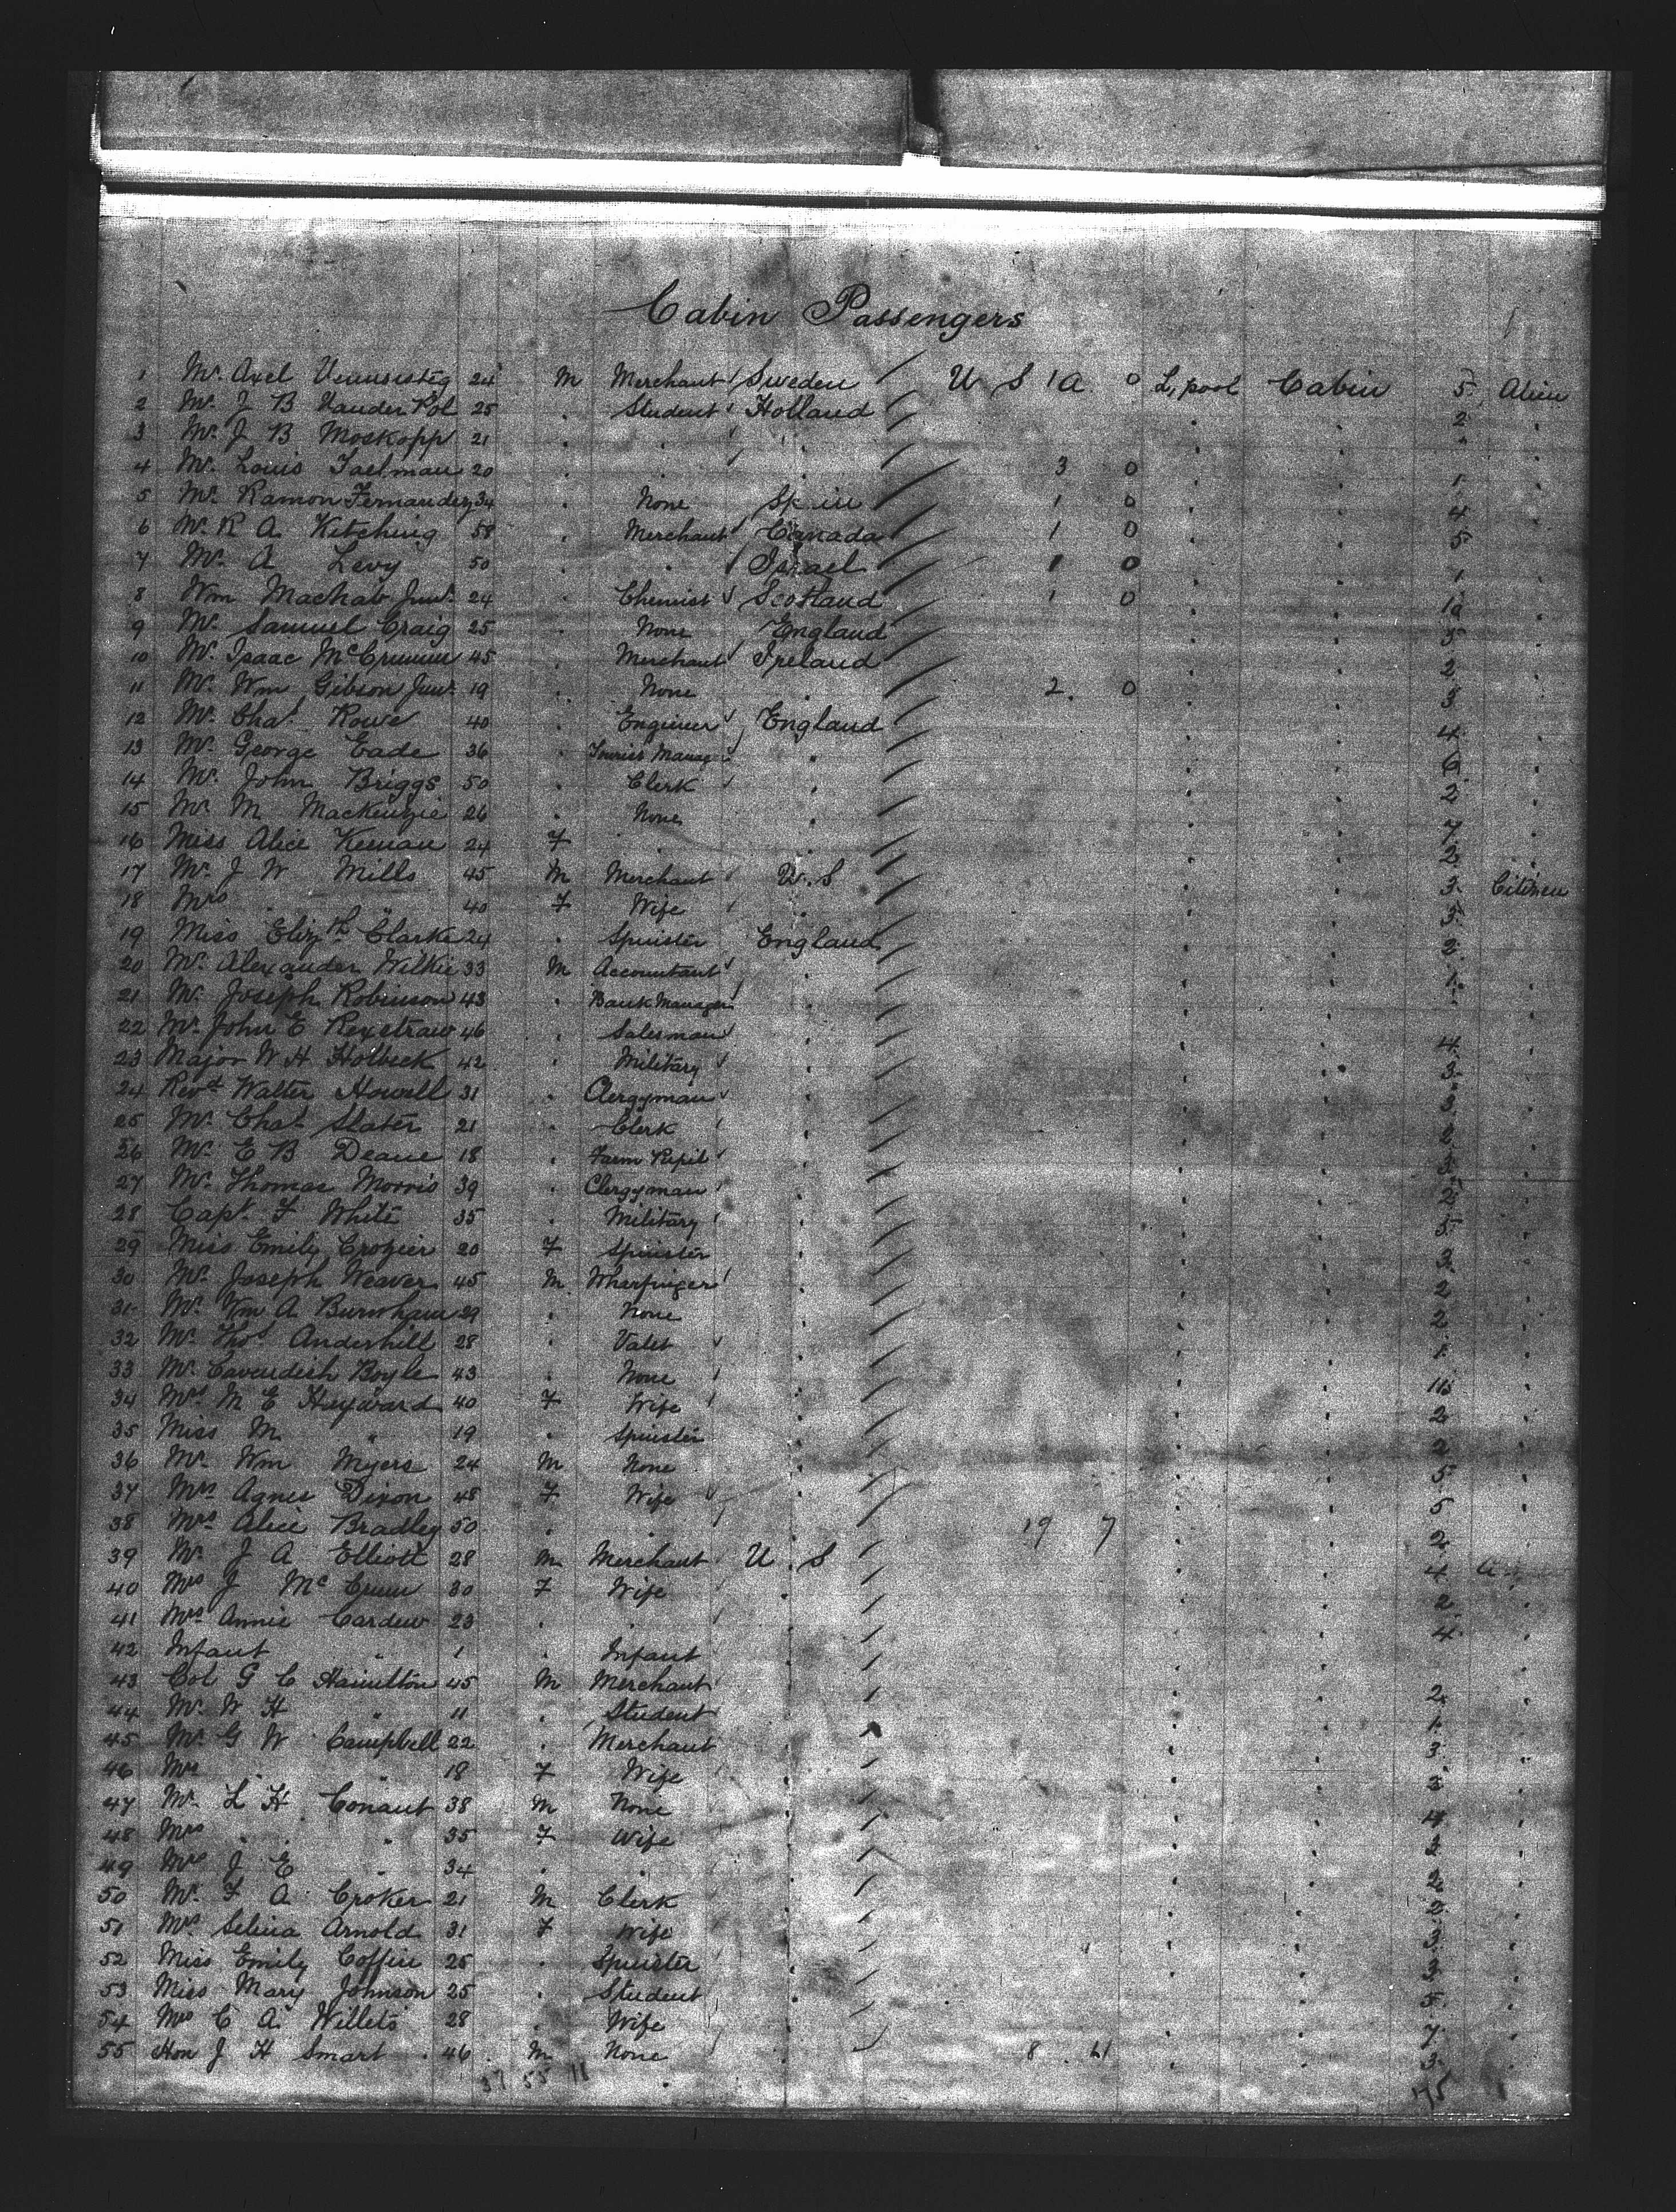 Cabin Passengers
1 Mr. Axel 24 M Merchant Sweden U S 1 A 0 L,pool Cabin 5 Alien
2 Mr. J B Vander Pol 25 . Student Holland . . 2 .
3 Mr. J B Moskopp 21 . . . . . " .
4 Mr. Louis 20 . . . 3 0 . . 1 .
5 Mr. Ramon Fernandez 34 . None 1 0 . . 4 .
6 Mr. R A Kitching 58 . Merchant Canada 1 0 . . 5 .
7 Mr. A Levy 50 . . Israel 1 0 . . 1 .
8 Wm Machab Junr. 24 . Chemist Scotland 1 0 . . 10 .
9 Mr. Samuel Craig 25 . None England . . 5 .
10 Mr. Isaac 45 . Merchant Ireland . . 2 .
11 Mr. Wm Gibson Junr. 19 . None . 2 0 . . 3 .
12 Mr. Chas. Rowe 40 . Engineer England . . 4 .
13 Mr. George Eade 36 . Tourist Manag . . . 6 .
14 Mr. John Briggs 50 . Clerk . . . 2 .
15 Mr. M Mackenzie 26 . None . . . 7 .
16 Miss Alice Keenan 24 F . . . . 2 .
17 Mr. J W Mills 45 M Merchant U.S . . 3 Citizen
18 Mrs . " 40 F Wife . . . 5 .
19 Miss Elizth Clarke 24 . Spinster England . . 2 .
20 Mr. Alexander Wilkie 33 M Accountant . . . 1 .
21 Mr. Joseph Robinson 43 . Bank Manager . . . .
22 Mr. John E Rexstraw 46 . Salesman . . . 4 .
23 Major W H Holbeck 42 . Military . . . 3 .
24 Revd Walter Howell 31 . Clergyman . . . 3 .
25 Mr. Chas. Slater 21 . Clerk . . . 2 .
26 Mr. E B Deane 18 . Farm Pupil . . . 3 .
27 Mr. Thomas Morris 39 . Clergyman . . . 2 .
28 Capt. F White 35 . Military . . . 5 .
29 Miss Emily Crozier 20 F Spinster . . . 3 .
30 Mr. Joseph Weaver 45 M Wharfinger . . . 2 .
31 Mr. Wm A Burnham 29 . None . . . 2 .
32 Mr. Thos. Anderhill 28 . Valet . . . 1 .
33 Mr. Cavendish Boyle 43 . None . . . .
34 Mrs M E Hayward 40 F Wife . . . 2 .
35 Miss M " 19 . Spinster . . . 2 .
36 Mr. Wm Myers 24 M None . . . 5 .
37 Mrs Agnes Dixon 48 F Wife . . . 5 .
38 Mrs Alice Bradley 50 . . . 19 7 . . 2 .
39 Mr. J A Elliott 28 M Merchant U.S . . 4
40 Mrs J 30 F Wife . . . 2 .
41 Mrs Annie Cardew 23 . . . . . 4 .
42 Infant " 1 . Infant . . . .
43 Col G C Hamilton 45 M Merchant . . . 2 .
44 Mr. W H " 11 . Student . . . 1 .
45 Mr. G W Campbell 22 . Merchant . . . 3 .
46 Mrs . " 18 F Wife . . . 2 .
47 Mr. L H Conant 38 M None . . . 4 .
48 Mrs . . " 35 F Wife . . . 2 .
49 Mrs J E " 34 . . . . . 2 .
50 Mr. F A Croker 21 M Clerk . . . 2 .
51 Mrs Selina Arnold 31 F Wife . . . 3 .
52 Miss Emily Coffin 25 . Spinster . . . 3 .
53 Miss Mary Johnson 25 . Student . . . 5 .
54 Mrs C A Willets 28 . Wife . . . 7 .
55 Hon J H Smart 46 M None . 8 . . 3 .
37 55 11